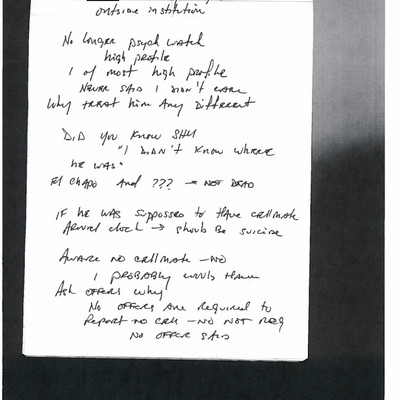 outside institution
No longer psych watch
high profile
1 of most high profile
Never said I didn't care
Why treat him any different
DID you know SHU
"I DIDN'T KNOW WHERE
HE WAS"
El CHAPO AND ??? → NOT DEAD
IF HE WAS supposed to Have cellmate
Around clock → should Be suicide
AWARE no cellmate - NO
I probably would Have
Ask offers why
No offers are Required to
Report no cell - NO NOT Req
NO OFFER SAID